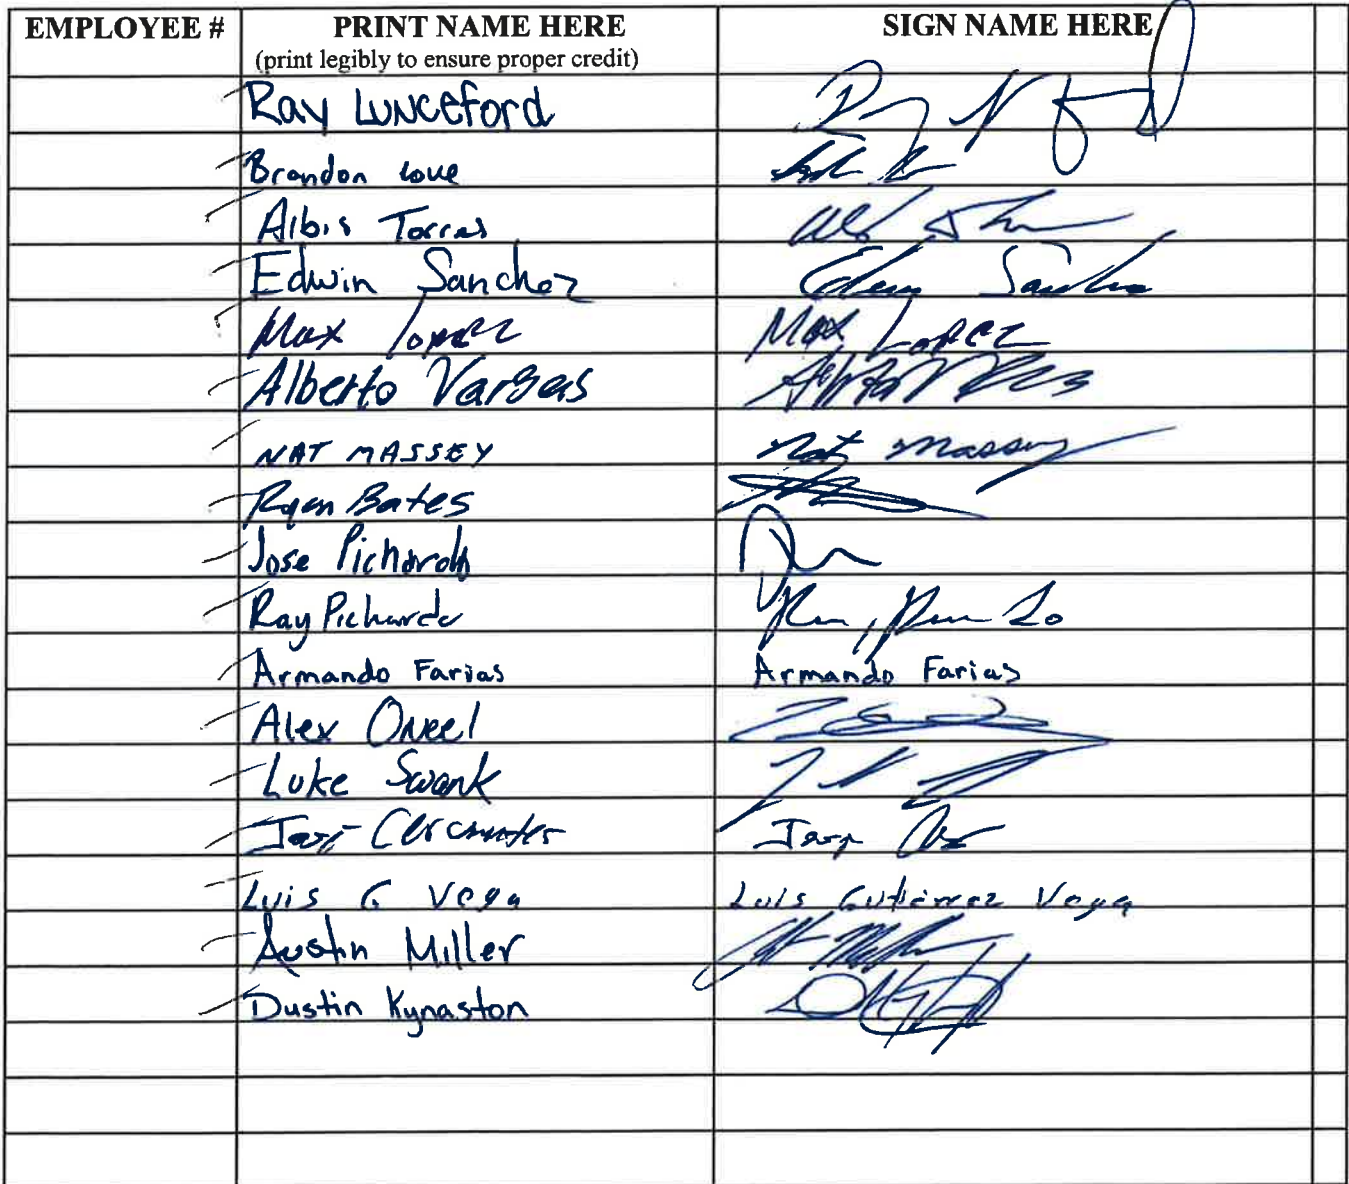 EMPLOYEE # PRINT NAME HERE SIGN NAME HERE
(print legibly to ensure proper credit)
Ray Lunceford
Brandon Love
Albis Torres
Edwin Sanchez
Max Lopez Max Lopez
Alberto Vargas
NAT MASSEY Nat Massey
Ryan Bates
Jose Pichardo
Ray Pichardo
Armando Farias Armando Farias
Alex Oneel
Luke Swank
Cervantes
Luis G Vega Luis Gutierrez Vega
Austin Miller
Dustin Kynaston